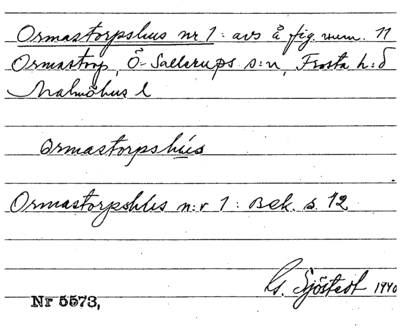 Ormastorpshus nr 1: avs å fig. num. 11
Ormastorp, Ö-Sallerups s:n, Frosta h:d
Malmöhus l
Ormastorpshus
Ormastorpshus n:r 1: Bek. s. 12
G. Sjöstedt 1940
Nr 5573,